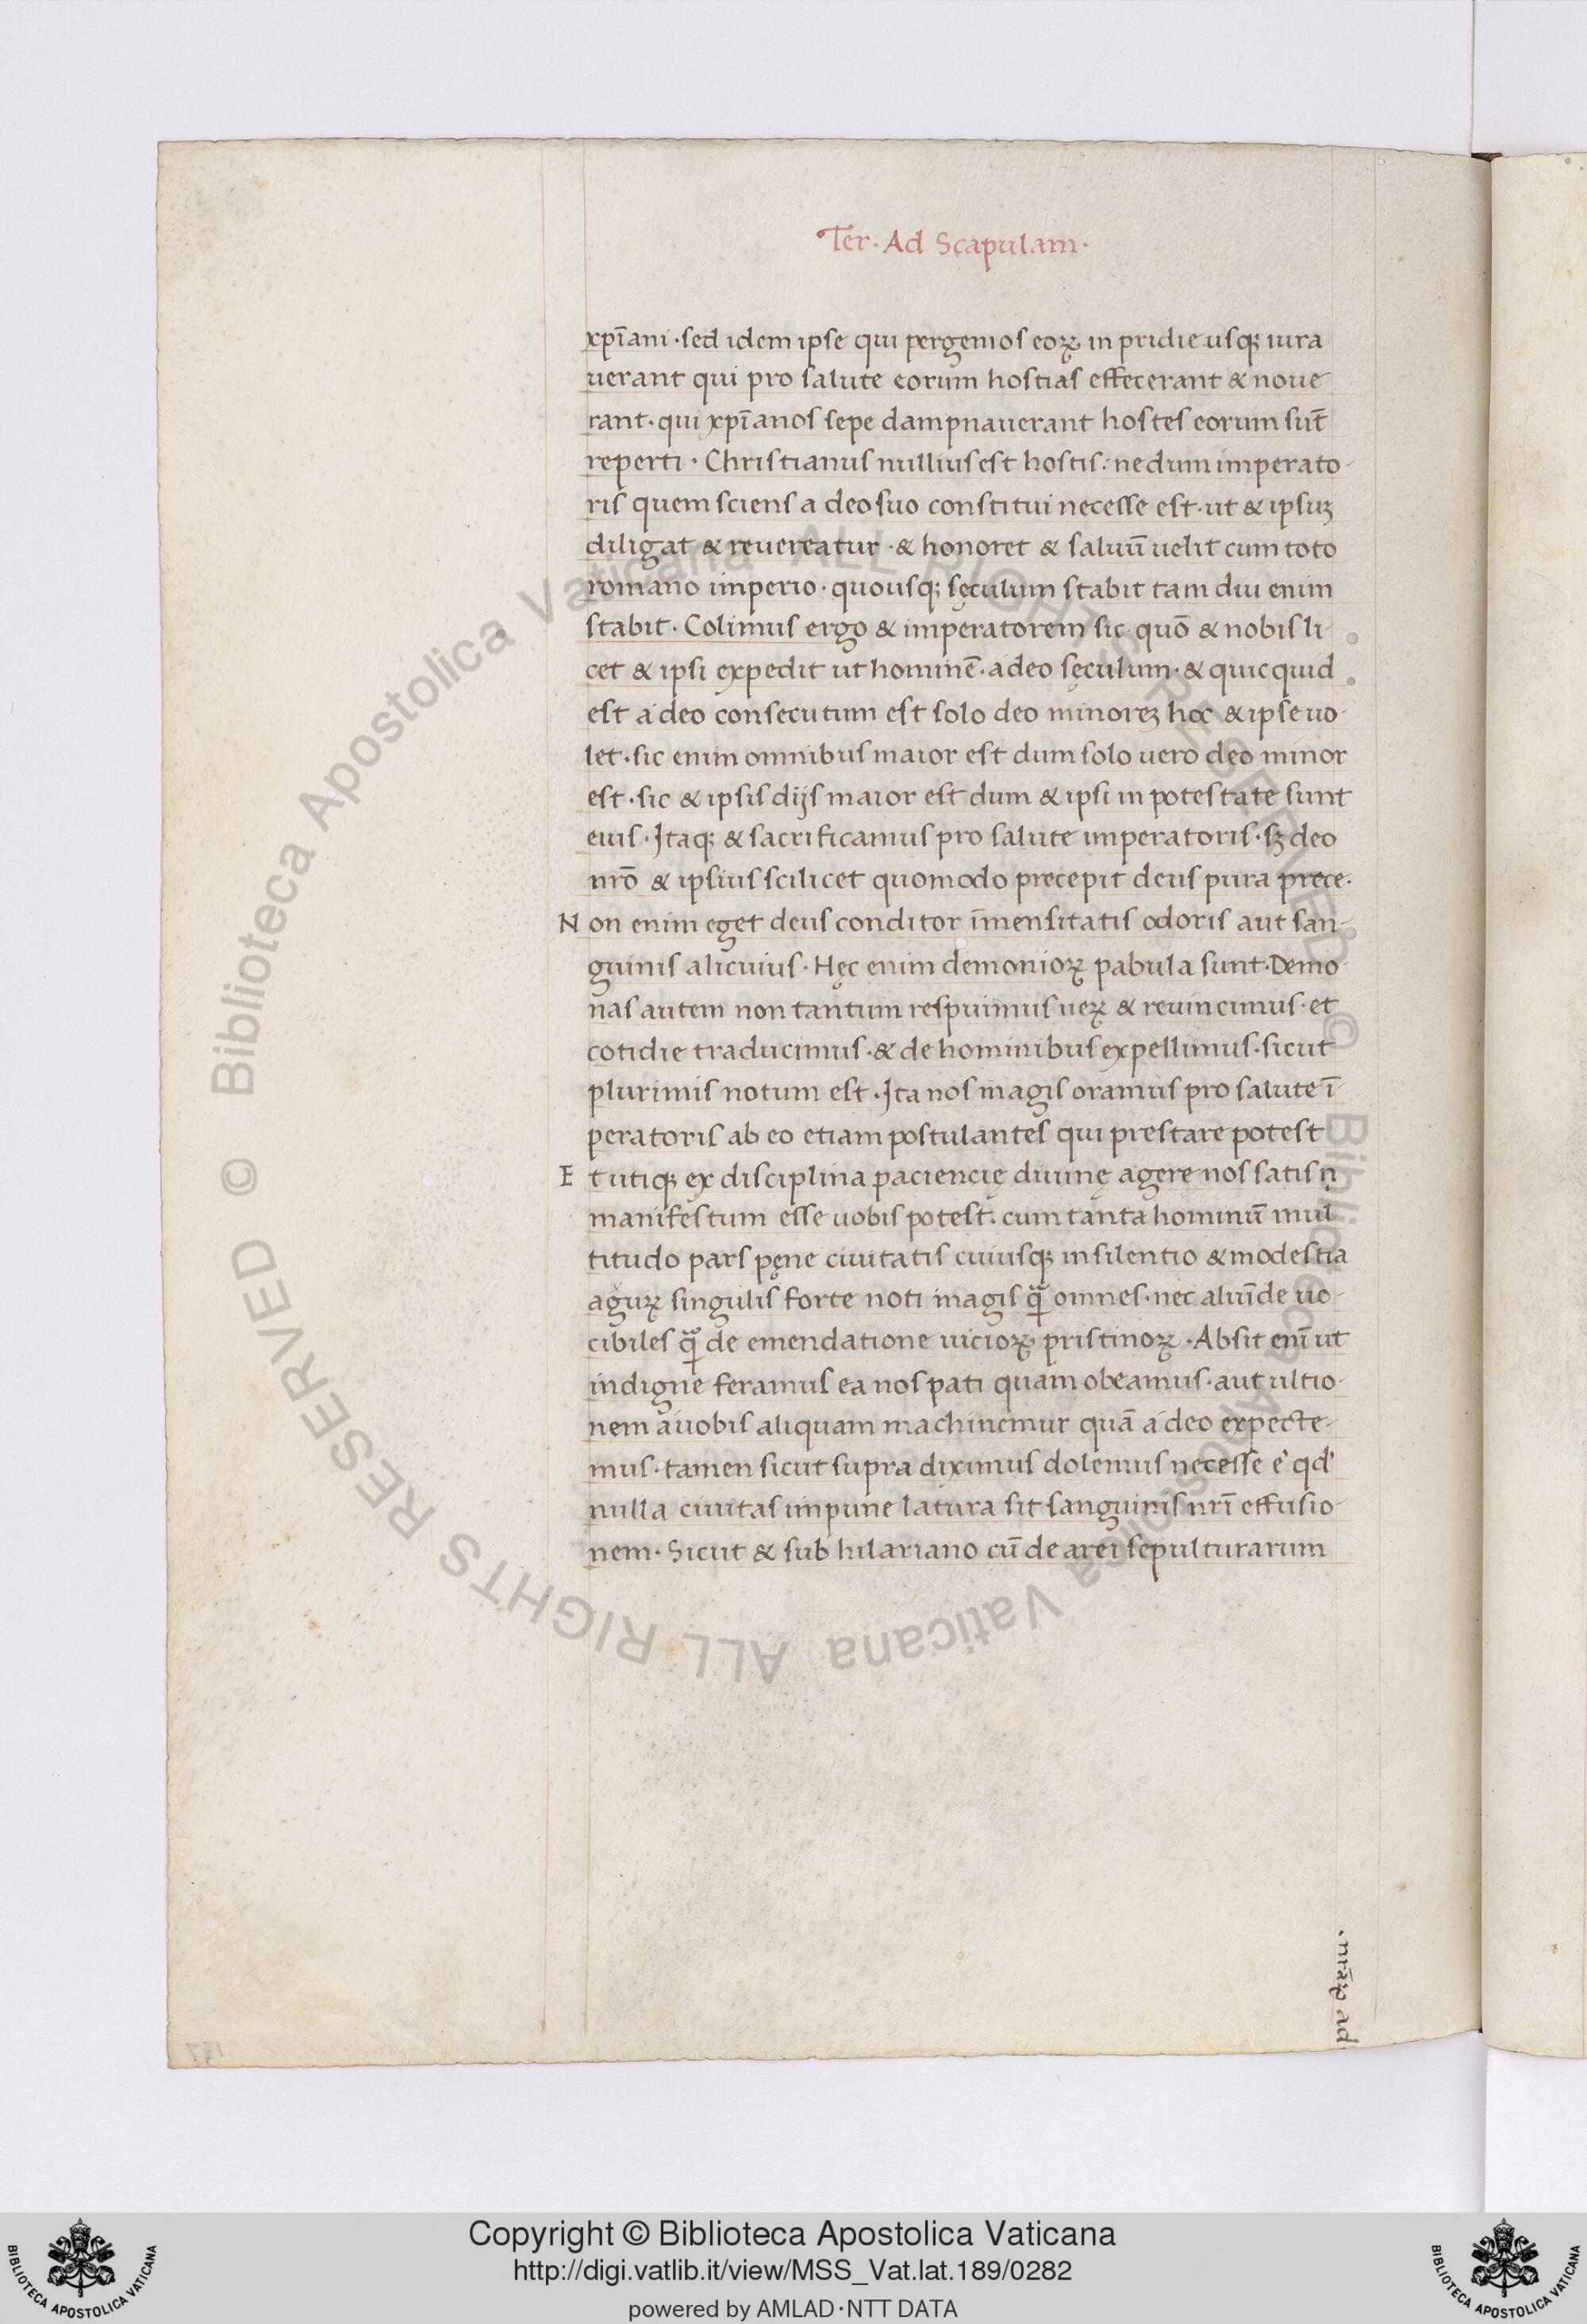 Ter · Ad Scapulam ·
xp̄iani · sed idem ipse qui pergenios eoꝝ in pridie usqꝫ iura
uerant qui pro salute eorum hostias effecerant & noue
rant · qui xp̄ianos sepe dampnauerant hostes eorum sūt
reperti · Christianus nullius est hostis : nedum imperato-
ris quem sciens a deo suo constitui necesse est · ut & ipsuꝫ
diligat & reuereatur · & honoret & saluū uelit cum toto
romano imperio · quousqꝫ sęculum stabit tam diu enim
stabit · Colimus ergo & imperatorem sic quō & nobis li-
cet & ipsi expedit ut hominē · a deo sęculum · & quicquid
est a deo consecutum est solo deo minoreꝫ hoc & ipse uo-
let · sic enim omnibus maior est dum solo uero deo minor
est · sic & ipsis dijs maior est dum & ipsi in potestate sunt
eius · Itaqꝫ & sacrificamus pro salute imperatoris · sꝫ deo
nr̄o & ipsius scilicet quomodo precepit deus pura prece ·
Non enim eget deus conditor īmensitatis odoris aut san-
guinis alicuius · Hęc enim demonioꝝ pabula sunt · Demo-
nas autem non tantum respuimus ueꝝ & reuincimus · et
cotidie traducimus · & de hominibus expellimus · sicut
plurimis notum est · Ita nos magis oramus pro salute ī-
peratoris ab eo etiam postulantes qui prestare potest
Et utiqꝫ ex disciplina paciencię diuinę agere nos satis n̄
manifestum esse uobis potest · cum tanta hominū mul
titudo pars pęne ciuitatis cuiusqꝫ in silentio & modestia
aguꝝ singulis forte noti magis qᷓ omnes · nec aliūde uo-
cibiles qᷓ de emendatione uicioꝝ pristinoꝝ · Absit enī ut
indigne feramus ea nos pati quam obeamus · aut ultio-
nem a uobis aliquam machinemur quā a deo expecte-
mus · tamen sicut supra diximus dolemus necesse ē qd'
nulla ciuitas impune latura sit sanguinis nr̄i effusio-
nem · Sicut & sub hilariano cū de areis sepulturarum
· nr̄aꝝ ad
Copyright © Biblioteca Apostolica Vaticana
http://digi.vatlib.it/view/MSS_Vat.lat.189/0282
powered by AMLAD·NTT DATA
BIBLIOTECA APOSTOLICA VATICANA
BIBLIOTECA APOSTOLICA VATICANA
© Biblioteca Apostolica Vaticana ALL RIGHTS RESERVED
© Biblioteca Apostolica Vaticana ALL RIGHTS RESERVED